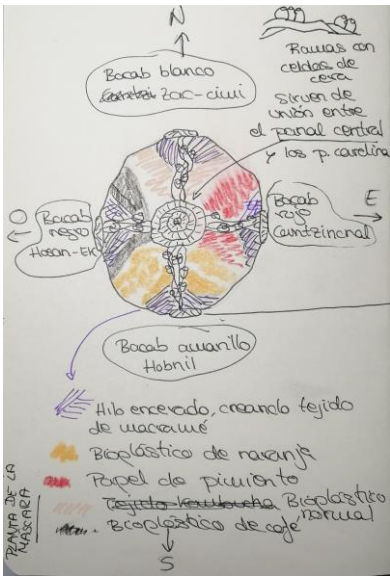 N
Ramas con
celdas de
cera
sirven de
unión entre
el panal central
y los p. carolina
Bacab blanco
Zac-cimi
O
Bacab
negro
Hosan-Ek
Bacab
rojo
Cantzincnal
E
Bacab amarillo
Hobnil
Hilo encerado, creando tejido
de macramé
Bioplástico de naranja
Papel de pimiento
Tejido kombucha Bioplástico
normal
Bioplástico de café
S
PLANTA DE LA
MASCARA